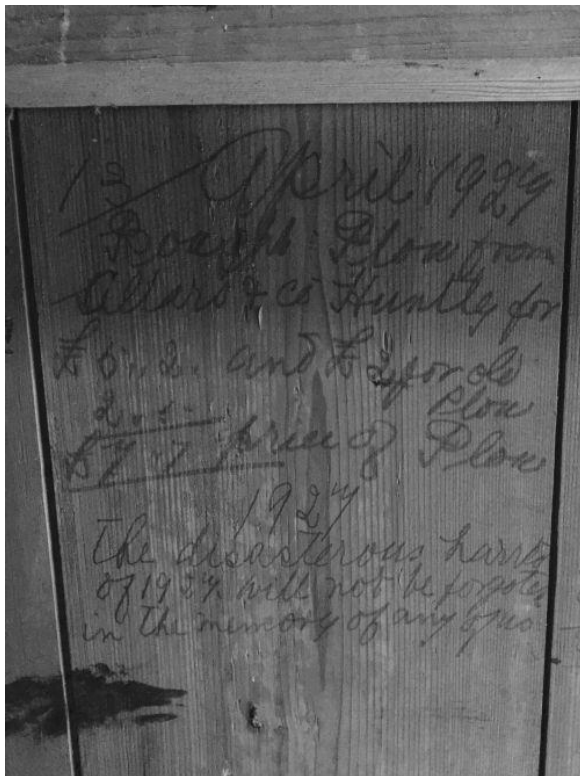 13/ April 1927
Bought Plow from
& co Huntly for
£5.. 2. and £2 for old
Plow
2..
£7.7 price of Plow
1927
The disasterous harst
of 1927 will not be forgoten
in the memory of any